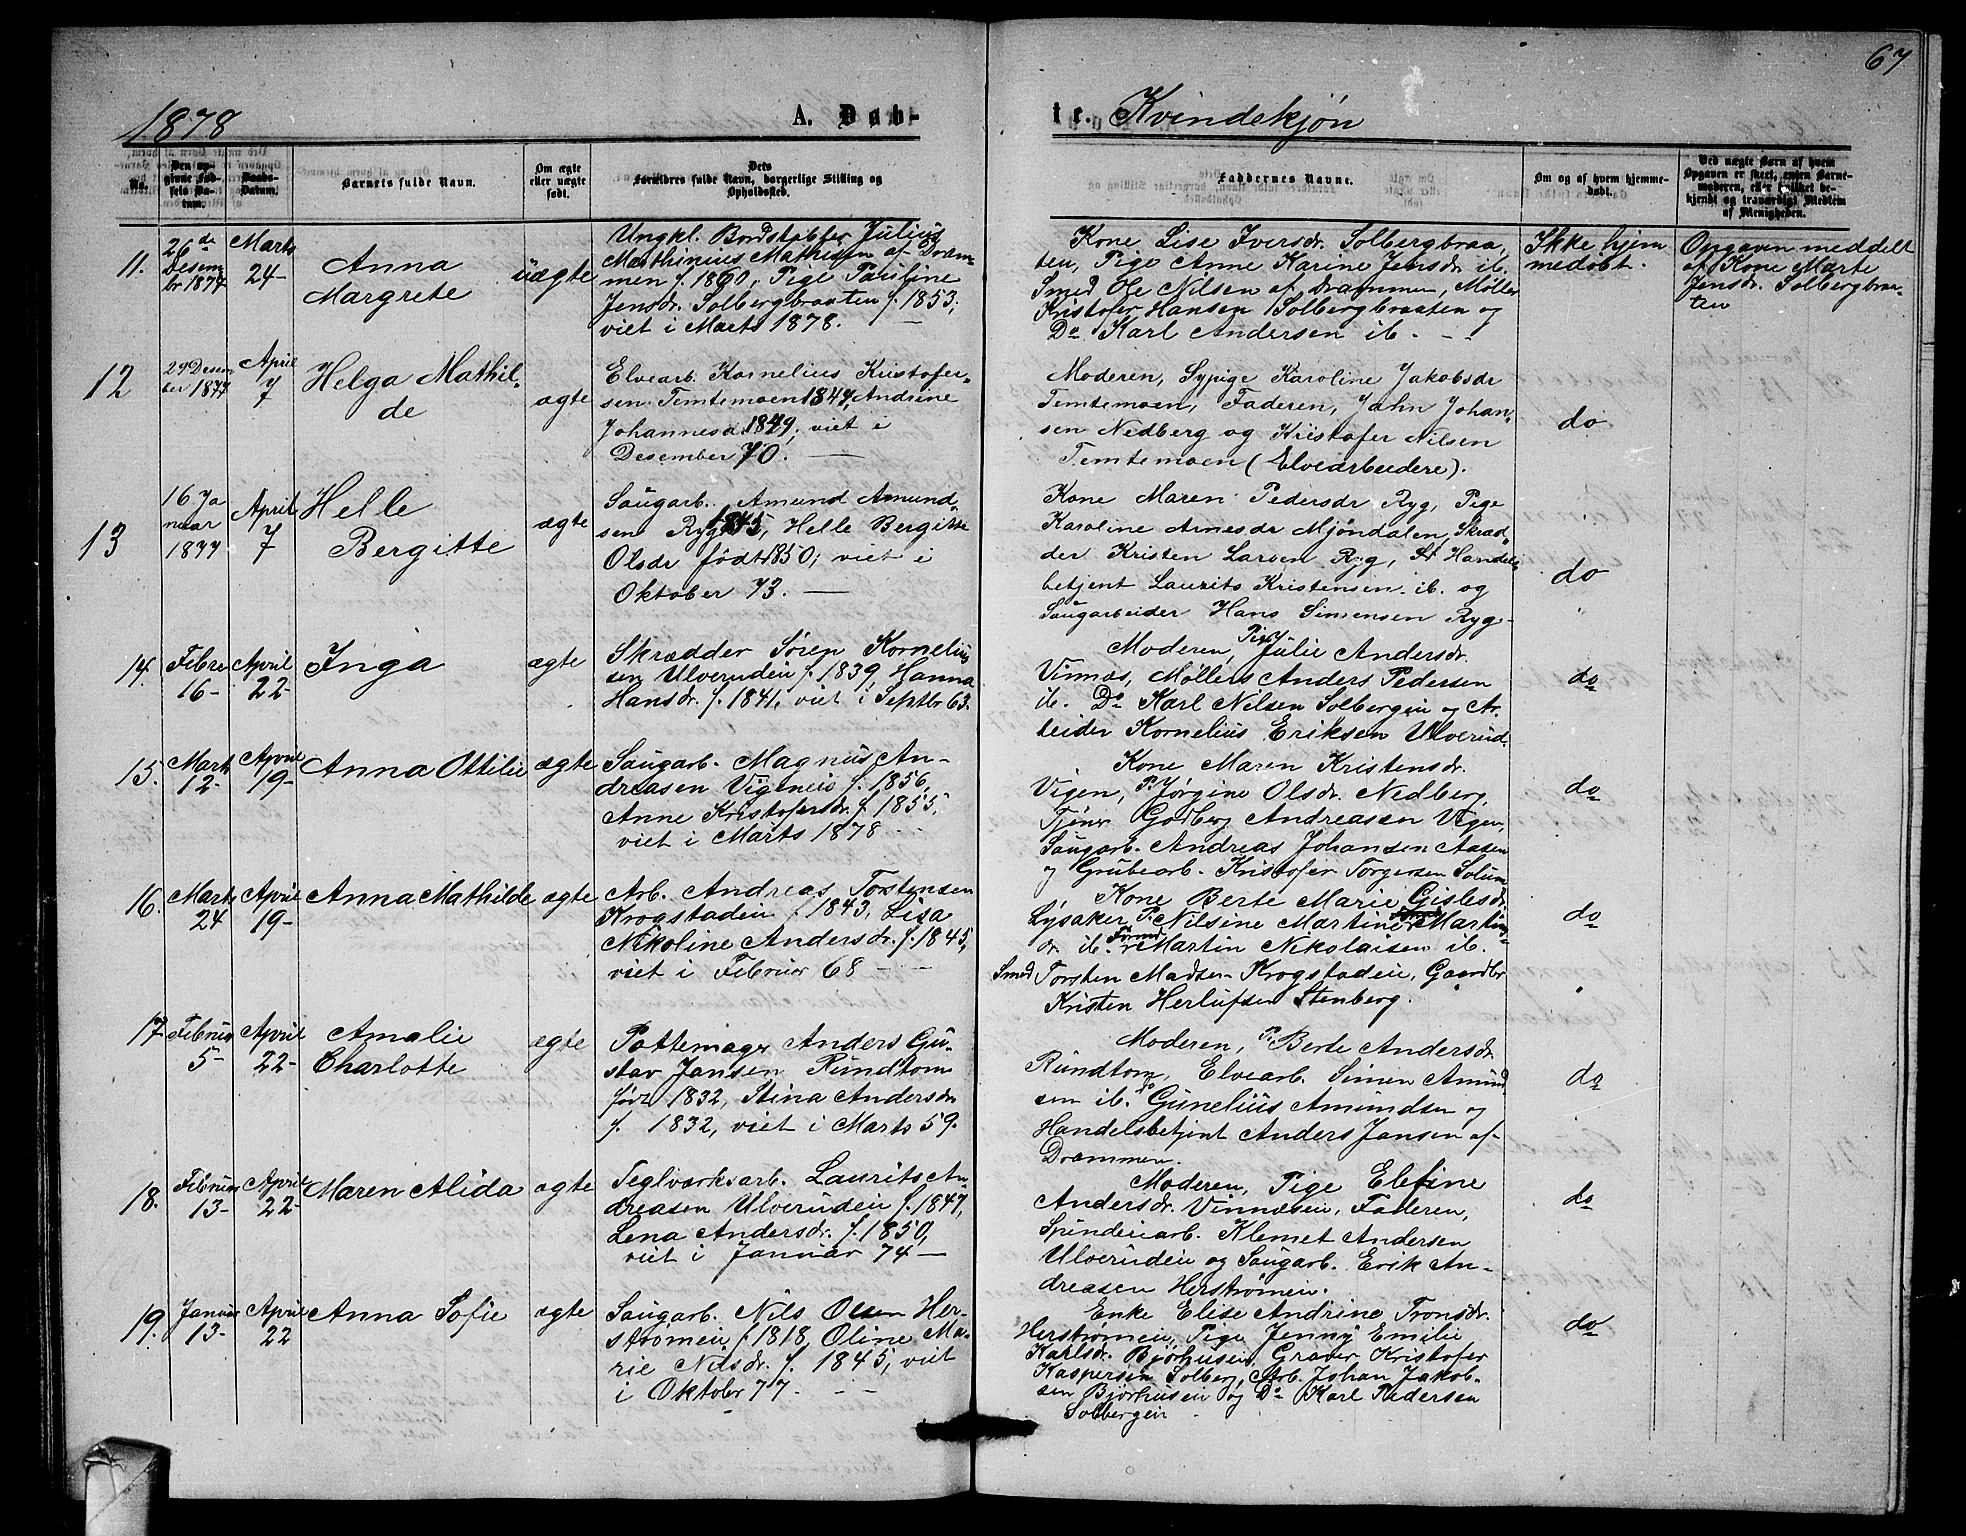 67
1878
A. Døbte. Kvindekjøn
No.
Den opgivne Fødsels Datum.
Daabs-Datum.
Barnets fulde Navn.
Om ægte eller uægte født.
Dets Forældres fulde Navn, borgerlige Stilling og Opholdssted.
Faddernes Navne.
Om og af hvem hjemmedøbt.
Ved uægte Børn af hvem Opgaven er skeet, enten Barnemoderen, eller hvilket bekjendt og troværdigt Medlem af Menigheden.
11.
26de Desembr 1877
Marts 24-
Anna
Margrete
uægte
Ungkl. Bordstabler Julius
Mathinius Mathisen af Drammen
f. 1860, Pige Pauline
Jensdr. Solbergbraaten f. 1853,
viet i Marts 1878.
Kone Lise Iversdr. Solbergbraaten,
Pige Anne Karine Jensdr ib.
Smed Ole Nilsen af Drammen, Møller
Kristofer Hansen Solbergbraaten og
Do Karl Andersen ib.
Ikke hjemmedøbt.
Opgaven meddelt
af Kone Marte
Jensdr. Solbergbraaten
12
29 Desember 1877
April 7
Helga Mathilde
ægte
Elvearb. Kornelius Kristofersen
Temtemoen 1847, Andrine
Johannesd. 1849, viet i
Desember 70.
Moderen, Sypige Karoline Jakobsdr
Temtemoen, Faderen, Jahn Johansen
Nedberg og Kristofer Nilsen
Temtemoen (Elvearbeidere).
do
13
16 Januar 1877
April 7
Helle
Bergitte
ægte
Saugarb. Amund Amundsen
Ryg 1845, Helle Bergitte
Olsdr født 1850, viet i
Oktober 73.
Kone Maren Pedersdr Ryg, Pige
Karoline Arnesdr Mjøndalen, Skrædder
Kristen Larsen Ryg, Handelsbetjent
Laurits Kristensen ib. og
Saugarbeider Hans Simensen Ryg-
do
14.
Febru 16-
April 22-
Inga
ægte
Skrædder Søren Korneliussen
Ulverudeie f. 1839, Hanna
Hansdr. f. 1841, viet i Septbr 63.
Moderen, Pige Julie Andersdr.
Vinnæs, Møller Anders Pedersen
ib. Do Karl Nilsen Solbergeie og Arbeider
Kornelius Eriksen Ulverud.
do
15.
Marts 12-
April 19-
Anna Ottilie
ægte
Saugarb. Magnus Andreasen
Vigeneie f. 1856,
Anne Kristofersdr. f. 1855,
viet i Marts 1878
Kone Maren Kristensdr.
Vigen, P. Jørgine Olsdr. Nedberg,
Tjener Godberg Andreasen Vigen,
Saugarb. Andreas Johansen Aasen
og Grubearb. Kristofer Torgersen Solum-
do
16.
Marts 24
April 19-
Anna Mathilde
ægte
Arb. Andreas Torstensen
Krogstadeie f. 1843, Lisa
Nikoline Andersdr. f. 1845,
viet i Februar 68
Kone Berte Marie Gislesdr.
Lysaker P. Nilsine Martine Martinsdr.
ib. Martin Nikolaisen ib.
Smed Torsten Madsen Krogstadeie, Gaardbr
Kristen Herlufsen Stenberg.
do
17
Februar 5-
April 22-
Amalie
Charlotte
ægte
Pottemager Anders Gustav
Jansen Rundtom
født 1832, Stina Andersdr
f. 1832, viet i Marts 59.
Moderen, P. Berte Andersdr.
Rundtom, Elvearb. Simen Amundsen
ib. Do Gunelius Amundsen og
Handelsbetjent Anders Jansen af
Drammen.
do
18.
Februar 13-
April 22-
Maren Alida
ægte
Teglværksarb. Laurits Andreasen
Ulverudeie f. 1847,
Lena Andersdr. f. 1850,
viet i Januar 74-
Moderen, Pige Elefine
Andersdr. Vinnæseie, Faderen,
Spinderiarb. Klemet Andersen
Ulverudeie og Saugarb. Erik Andreasen
Herstrømeie.
do
19.
Januar 13-
April 22
Anna Sofie
ægte
Saugarb. Nils Olsen Herstrømeie
f. 1818, Oline Marie
Nilsdr. f. 1845, viet
i Oktober 77.
Enke Elise Andrine Tronsdr.
Herstrømeie, Pige Jenny Emilie
Karlsdr. Bjørhuseie, Graver Kristofer
Kaspersen Solberg, Arb. Johan Jakobsen
Bjørhuseie og Do Karl Pedersen
Solbergeie
do